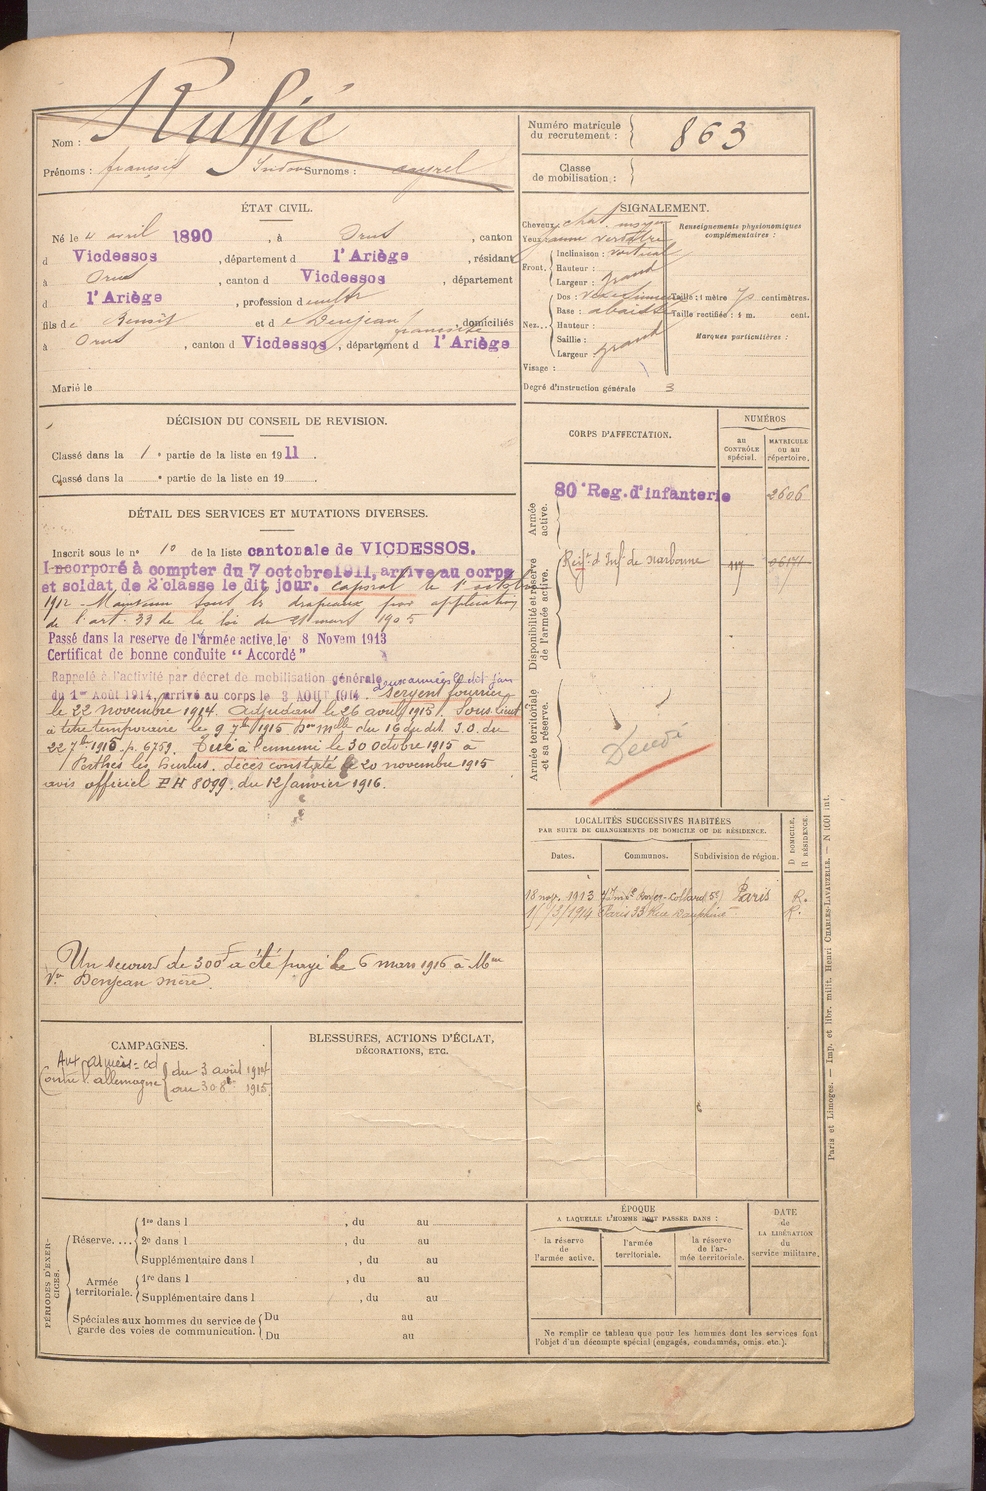 Nom : Ruffié
Prénoms : françois Isidore Surnoms :
Numéro matricule du recrutement : 863
Classe de mobilisation :
ÉTAT CIVIL.
Né le 4 avril 1890, à Orus, canton
d Vicdessos, département d l'Ariège, résidant
à Orus, canton d Vicdessos, département
d l'Ariège, profession d
fils de Benoît et de Denjean françoise, domiciliés
à Orus, canton d Vicdessos, département d l'Ariège
Marié le
SIGNALEMENT.
Cheveux chat. moyen
Yeux jaune verdâtre
Front. Inclinaison : vertical
Hauteur :
Largeur : grand
Nez. Dos :
Base : abaissé
Hauteur :
Saillie :
Largeur : grand
Visage :
Renseignements physionomiques complémentaires :
Taille : 1 mètre 70 centimètres.
Taille rectifiée : 1 m. cent.
Marques particulières :
Degré d'instruction générale 3
DÉCISION DU CONSEIL DE REVISION.
Classé dans la 1e partie de la liste en 1911.
Classé dans la e partie de la liste en 19 .
DÉTAIL DES SERVICES ET MUTATIONS DIVERSES.
Inscrit sous le n° 10 de la liste cantonale de VICDESSOS.
Incorporé à compter du 7 octobre 1911, arrive au corps
et soldat de 2e classe le dit jour. caporal le 1er octobre
1912 Maintenu sous les drapeaux par application
de l'art. 33 de la loi de 21 mars 1905
Passé dans la reserve de l'armée active, le 8 Novem 1913
Certificat de bonne conduite "Accordé"
Rappelé à l'activité par décret de mobilisation générale
du 1er Août 1914, arrivé au corps le 3 AOUT 1914. Sergent fourrier
le 22 novembre 1914. Adjudant le 26 août 1915. Sous lieut
à titre temporaire le 9 7bre 1915 Don Mlle du 16 du dit J.O. du
22 7bre 1915 p. 6759. Tué à l'ennemi le 30 octobre 1915 à
Perthes les Hurlus. décès constaté le 20 novembre 1915
avis officiel PH 8099 du 12 Janvier 1916.
Un secours de 300f a été payé le 6 mars 1916 à Mme
Vve Denjean mère.
CORPS D'AFFECTATION.
NUMÉROS
au CONTRÔLE spécial.
MATRICULE ou au répertoire.
Armée active.
80e Reg. d'infanterie 2606
Disponibilité et réserve de l'armée active.
Regt d'Inf. de Narbonne
Armée territoriale et sa réserve.
Décédé
LOCALITÉS SUCCESSIVES HABITÉES
PAR SUITE DE CHANGEMENTS DE DOMICILE OU DE RÉSIDENCE.
Dates. Communes. Subdivision de région. D DOMICILE, R RÉSIDENCE.
18 nov. 1913 Royer-Collard (5e) Paris R.
1/3/1914 Paris 33 Rue Dauphine R.
CAMPAGNES.
Aux armées
Contre l'allemagne du 3 1914
au 30 8bre 1915
BLESSURES, ACTIONS D'ÉCLAT,
DÉCORATIONS, ETC.
PÉRIODES D'EXERCICES.
Réserve.... 1re dans l , du au
2e dans l , du au
Supplémentaire dans l , du au
Armée territoriale. 1re dans l , du au
Supplémentaire dans l , du au
Spéciales aux hommes du service de garde des voies de communication. Du au
Du au
ÉPOQUE
A LAQUELLE L'HOMME DOIT PASSER DANS :
la réserve de l'armée active.
l'armée territoriale.
la réserve de l'armée territoriale.
DATE de LA LIBÉRATION du service militaire.
Ne remplir ce tableau que pour les hommes dont les services font
l'objet d'un décompte spécial (engagés, condamnés, omis, etc.).
Paris et Limoges. — Imp. et libr. milit. Henri CHARLES-LAVAUZELLE. — N 1601 int.